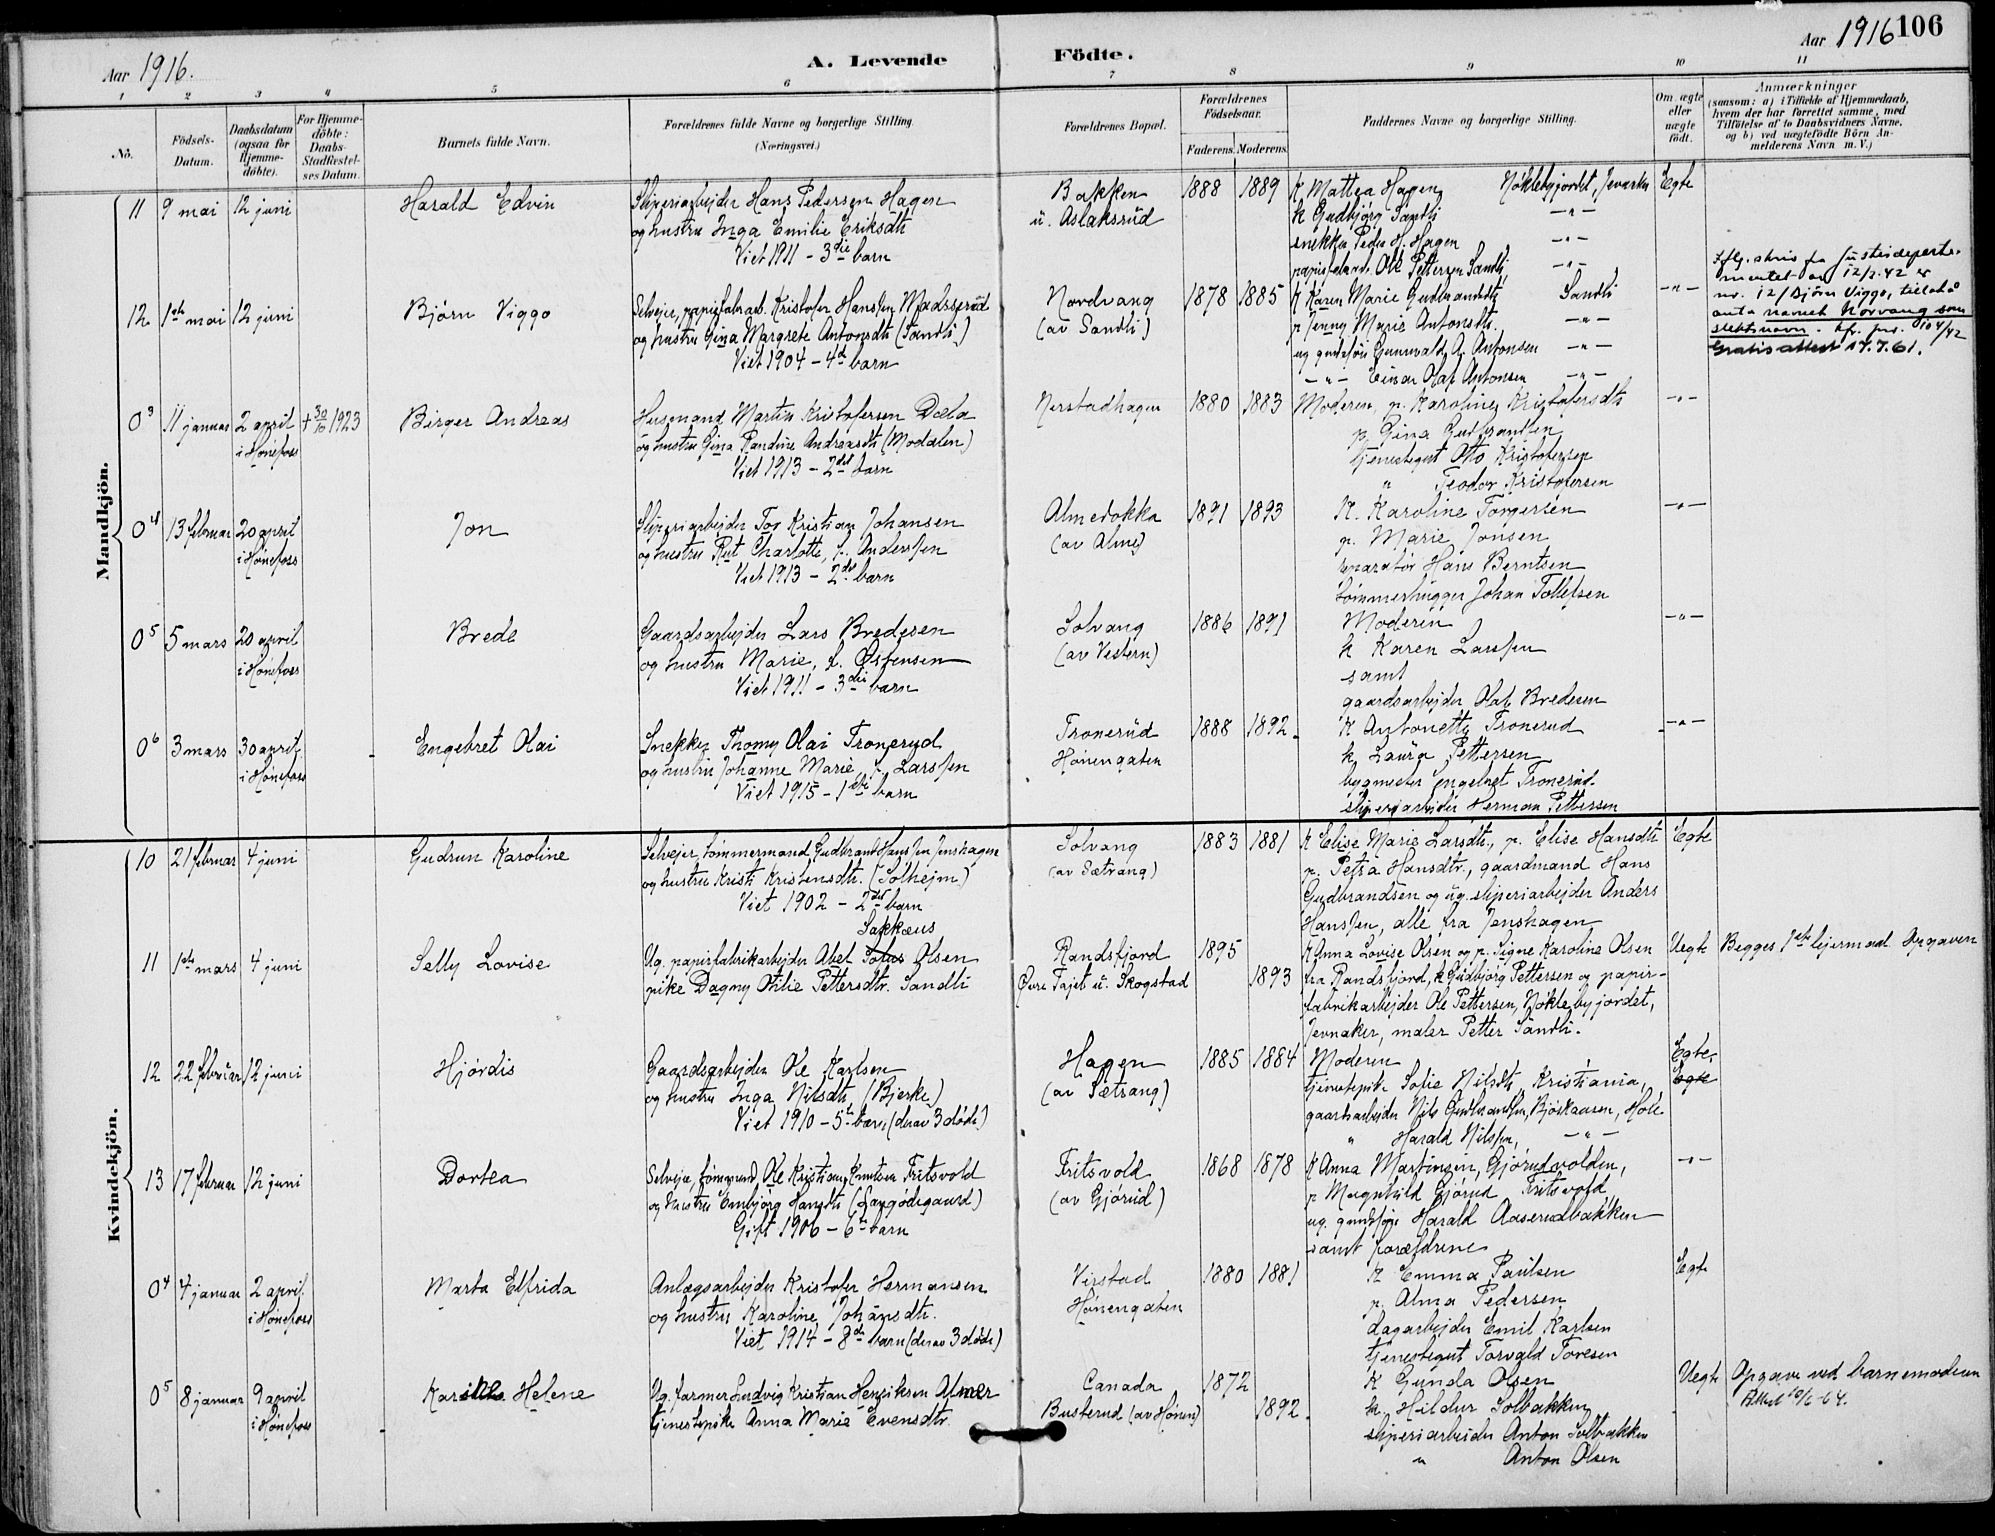 Aar 1916.
A. Levende
Födte.
Aar 1916 106
1 2 3 4 5 6 7 8 9 10 11
No.
Födsels-Datum.
Daabsdatum (ogsaa for Hjemmedöbte).
For Hjemmedöbte: Daabs-Stadfæstelses Datum.
Barnets fulde Navn.
Forældrenes fulde Navne og borgerlige Stilling
(Næringsvei.)
Forældrenes Bopæl.
Forældrenes Födselsaar.
Faderens. Moderens.
Faddernes Navne og borgerlige Stilling.
Om ægte eller uægte födt.
Anmærkninger
(saasom: a) i Tilfælde af Hjemmedaab,
hvem der har forrettet samme, med
Tilföielse af to Daabsvidners Navne.
og b) ved uægtefödte Börn An-
melderens Navn m. V.)
Mandkjön.
11 9 mai 12 juni Harald Edvin
Sliperiarbejder Hans Pedersen Hagen
og hustru Inga Emilie Eriksdtr
Viet 1911 - 3die barn
Bakken
u. Aslaksrud
1888 1889
K Mattea Hagen, Nøklebyjordet, Jevnaker
k Gudbjørg Sandli -"-
snekker Peder H. Hagen -"-
papirfabarb. Ole Pettersen Sandli -"-
Egte
12 1ste mai 12 juni Bjørn Viggo
Selveier, papirfabarb. Kristofer Hanssen Madsserud
og hustru Gina Margrete Antonsdtr (Sandli)
Viet 1904 - 4de barn
Nordvang
(av Sandli)
1878 1885
K Karen Marie Gudbrandsdtr Sandli
p Jenny Marie Antonsdtr. -"-
ug gaardsgut Gunnvald A. Antonsen -"-
-"- Einar Olaf Antonsen -"-
-"-
Iflg. skriv fra Justisdeparte-
mentet av 12/2.42 er
nr. 12/Bjørn Viggo, tillatt å
anta navnet Norvang som
slektsnavn. kfr. jnr. 104/42
Gratis attest 17.7.61.
03 11 januar 2 april i Hønefoss + 30/10 1923 Birger Andreas
Husmand Martin Kristofersen Dæla
og hustru Gina Randine Andreasdtr (Modalen)
Viet 1913 - 2det barn
Nerstadhagen
1880 1883
Moderen, p. Karoline Kristofersdtr
p. Gina Gudbrandsen
tjenestegut Otto Kristofersen
" Teodor Kristofersen
-"-
04 13 februar 20 april i Hønefoss Jon
Sliperiarbejder Tor Kristian Johansen
og hustru Rut Charlotte, f. Anderssen
Viet 1913 - 2det barn
Almedokka
(av Alme)
1891 1893
K. Karoline Torgersen
p. Marie Jonsen
reparatør Hans Berntsen
tømmerhugger Johan Tollefsen
-"-
05 5 mars 20 april i Hønefoss Brede
Gaardsarbejder Lars Bredesen
og hustru Marie, f. Østensen
Viet 1911 - 3die barn
Solvang
(av Vestern)
1886 1891
Moderen
k Karen Larssen
samt
gaardsarbejder Olaf Bredesen
-"-
06 3 mars 30 april i Hønefoss Engebret Olai
Snekker Thomy Olai Tronerud
og hustru Johanne Marie f. Larssen
Viet 1915 - 1ste barn
Tronerud
Hønengaten
1888 1892.
K Antonette Tronerud
k Laura Pettersen
bygmester Engebret Tronerud
sliperiarbeider Herman Pettersen
-"-
Kvindekjön.
10 21 februar 4 juni Gudrun Karoline
Selveier, tømmermand Gudbrand Hanssen Jenshagen
og hustru Kristi Kristensdtr. (Solhejm)
Viet 1902 - 2det barn
Solvang
(av Sætrang)
1883 1881
K Elise Marie Larsdtr., p. Elise Hansdtr
p. Petra Hansdtr., gaardmand Hans
Gudbrandsen og ug. sliperiarbejder Anders
Hanssen, alle fra Jenshagen
Egte
11 1ste mars 4 juni Selly Lovise
Sakkæus
Ug. papirfabrikarbejder Abel Olsen
pike Dagny Otilie Pettersdtr. Sandli
Randsfjord
Øvre Fajet u. Skogstad
1895
1893
K Anna Lovise Olsen og p. Signe Karoline Olsen
fra Randsfjord, k Gudbjørg Pettersen og papir-
fabrikarbejder Ole Pettersen, Nøklebyjordet,
Jevnaker, maler Petter Sandli.
Uegte
Begges 1ste lejermaal. Opgaven
12 22 februar 12 juni Hjørdis
Gaardsarbejder Ole Karlsen
og hustru Inga Nilsdtr. (Bjerke)
Viet 1910 - 5te barn (derav 3 døde)
Hagen
(av Sætrang)
1885 1884
Moderen
tjenestepike Sofie Nilsdtr, Kristiania,
gaardsarbejder Nils Gudbrandsen, Bjørkaasen, Hole
" Harald Nilssen, -"-
Egte.
Egte
13 17 februar 12 juni Dortea
Selveier, tømmermd. Ole Kristian Knutsen Fritsvold
og hustru Embjørg Hansdtr (Langødegaard)
Gift 1906 - 6te barn
Fritsvold
(av Gjørud)
1868 1878
K Anna Martinsen, Gjørudvolden,
p Magnhild Gjørud Fritsvold
ug. gaardsgut Harald Aaserudbakken
samt forældrene
-"-
04 4 januar 2 april. i Hønefoss Marta Elfrida
Anlægsarbejder Kristofer Hermansen
og hustru Karoline Johansdtr.
Viet 1914 - 8de barn (derav 3 døde)
Virstad
Hønengaten
1880 1881
K Emma Paulsen
p. Alma Pedersen
dagarbejder Emil Karlsen
tjenestegut Torvald Toresen
Egte
05 8 januar 9 april i Hønefoss Helene
Ug. farmer Ludvig Kristian Henriksen Almer
tjenestepike Anna Marie Evensdtr.
Canada
Busterud (av Hønen)
1872
1892.
K Gunda Olsen
k. Hildur Solbakken
sliperiarbeider Anton Solbakken
" Anton Olsen
Uegte
Opgave ved barnemoderen